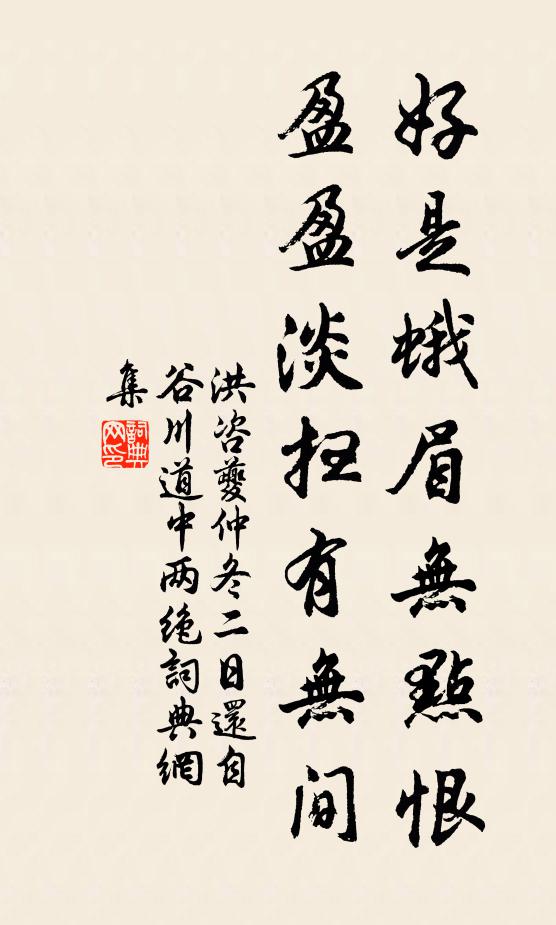 好是蛾眉無點恨
盈盈淡扫有無间
洪咨夔仲冬二日還自
谷川道中两绝詞典網
集
詞典网印